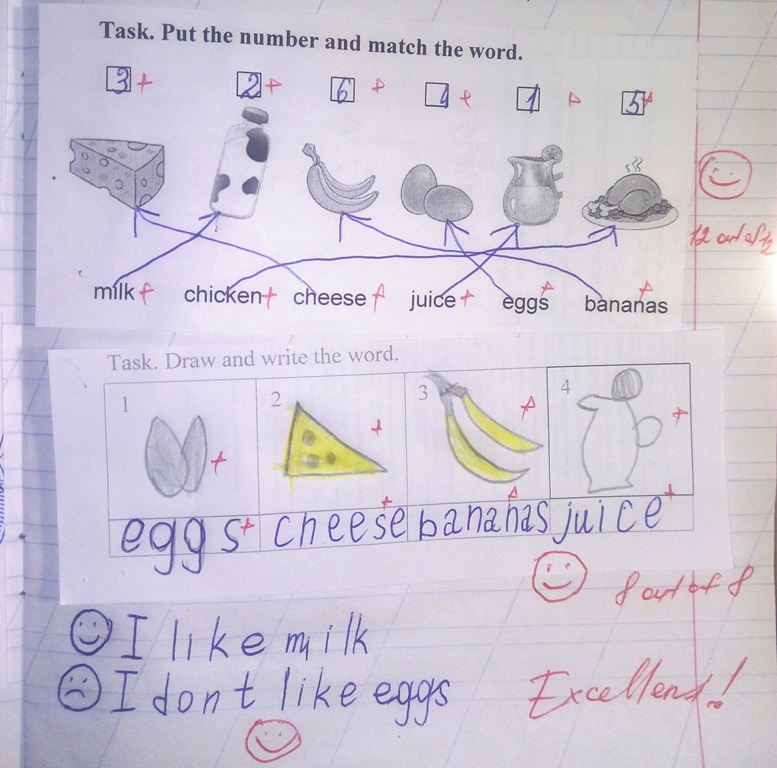 Task. Put the number and match the word.
3 + 2 + 6 + 4 + 1 + 5 +
12 out of 12
milk + chicken + cheese + juice + eggs + bananas +
Task. Draw and write the word.
1 2 3 4
+ + + +
eggs + cheese + bananas + juice +
8 out of 8
I like milk
I dont like eggs
Excellend!